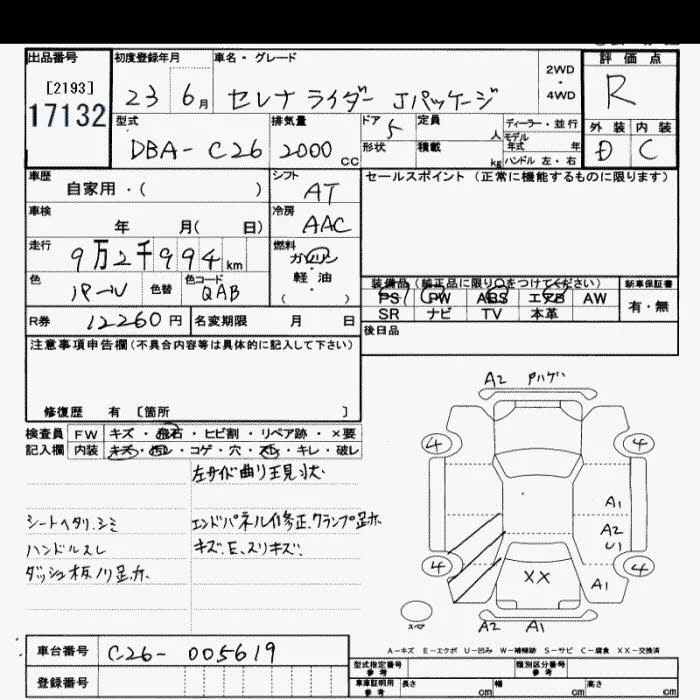 出品番号 初度登録年月 車名・グレード 2WD・4WD 評価点
[2193] 17132 23 6月 セレナ ライダー Jパッケージ R
型式 排気量 ドア 5 定員 人 ディーラー・並行 外装 内装
DBA-C26 2000 cc 形状 積載 kg モデル年式 年 ハンドル 左・右 D C
車歴 自家用・( ) シフト AT セールスポイント (正常に機能するものに限ります)
車検 年 月( 日) 冷房 AAC
走行 9万2千994 km 燃料 ガソリン・軽油 ( )
色 パール 色替 色コード QAB
装備品 (純正品に限り○をつけてください) 新車保証書
PS PW ABS エアB AW 有・無
SR ナビ TV 本革
R券 12260円 名変期限 月 日 後日品
注意事項申告欄(不具合内容等は具体的に記入して下さい)
修復歴 有 [箇所 ]
検査員 FW キズ・飛石・ヒビ割・リペア跡・×要
記入欄 内装 キズ・汚レ・コゲ・穴・スレ・キレ・破レ
左サイド曲り現状
シートヘタリ、シミ エンドパネル修正、クランプ跡有
ハンドルスレ キズ、E、スリキズ
ダッシュ板ノリ跡有
A2 Pハゲ
4 4
A1
A2
U1
4 4
XX A1
スペア A2 A1
A-キズ E-エクボ U-凹み W-補修跡 S-サビ C-腐食 XX-交換済
車台番号 C26-005619
登録番号
型式指定番号 参考 類別区分番号 参考
車庫証明用 参考 長さ cm 幅 cm 高さ cm